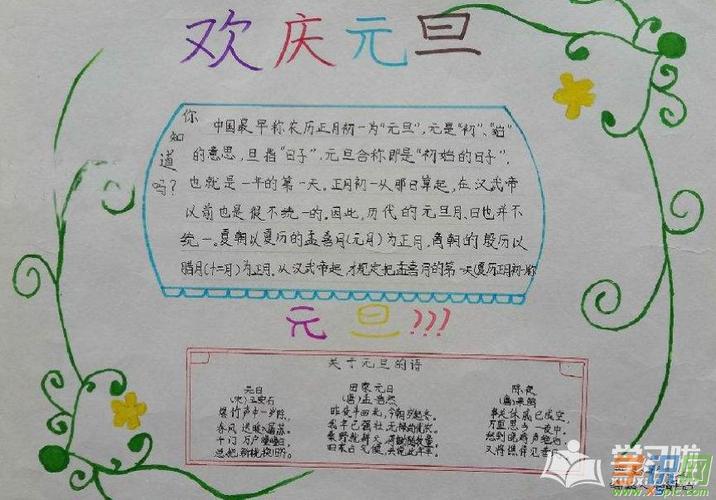 欢庆元旦
你知道吗?
中国最早称农历正月初一为“元旦”，元是“初”、“始”
的意思，旦指“日子”，元旦合称即是“初始的日子”，
也就是一年的第一天。正月初一从那日算起，在汉武帝
以前也是很不统一的。因此，历代的元旦月、日也并不
统一。夏朝以夏历的孟喜月(元月)为正月，商朝的殷历以
腊月(十二月)为正月，从汉武帝起，才规定把孟喜月的第一天(夏历正月初一)称
元旦???
关于元旦的语
元日
(宋)王安石
爆竹声中一岁除，
春风送暖入屠苏。
千门万户曈曈日，
总把新桃换旧符。
田家元日
(唐)孟浩然
昨夜斗回北，今朝岁起东。
我年已强仕，无禄尚忧农。
桑野就耕父，荷锄随牧童。
田家占气候，共说此年丰。
除夜
(唐)来鹄
事关休戚已成空，
万里思乡一夜中。
愁到晓鸡声绝后，
又将憔悴见春风。
学习啦
学识网